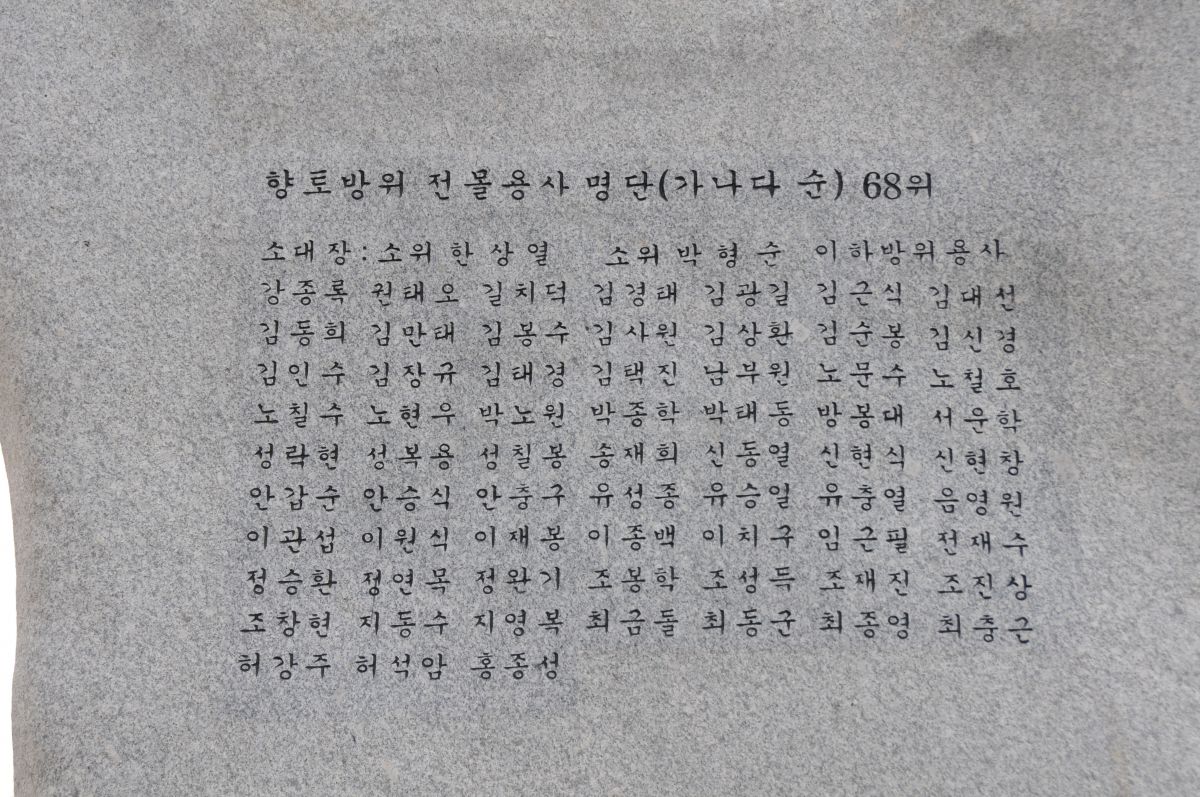 향토방위 전몰용사 명단(가나다 순) 68위
소대장:소위 한상열 소위 박형순 이하방위용사
강종록 권태오 길치덕 김경태 김광길 김근식 김대선
김동희 김만태 김봉수 김사원 김상환 김순봉 김신경
김인수 김장규 김태경 김택진 남부원 노문수 노철호
노칠수 노현우 박노원 박종학 박태동 방봉대 서운학
성락현 성복용 성칠봉 송재희 신동열 신현식 신현창
안갑순 안승식 안충구 유성종 유승일 유충열 음영원
이관섭 이원식 이재봉 이종백 이치구 임근필 전재수
정승환 정연목 정완기 조봉학 조성득 조재진 조진상
조창현 지동수 지영복 최금돌 최동군 최종영 최충근
허강주 허석암 홍종성